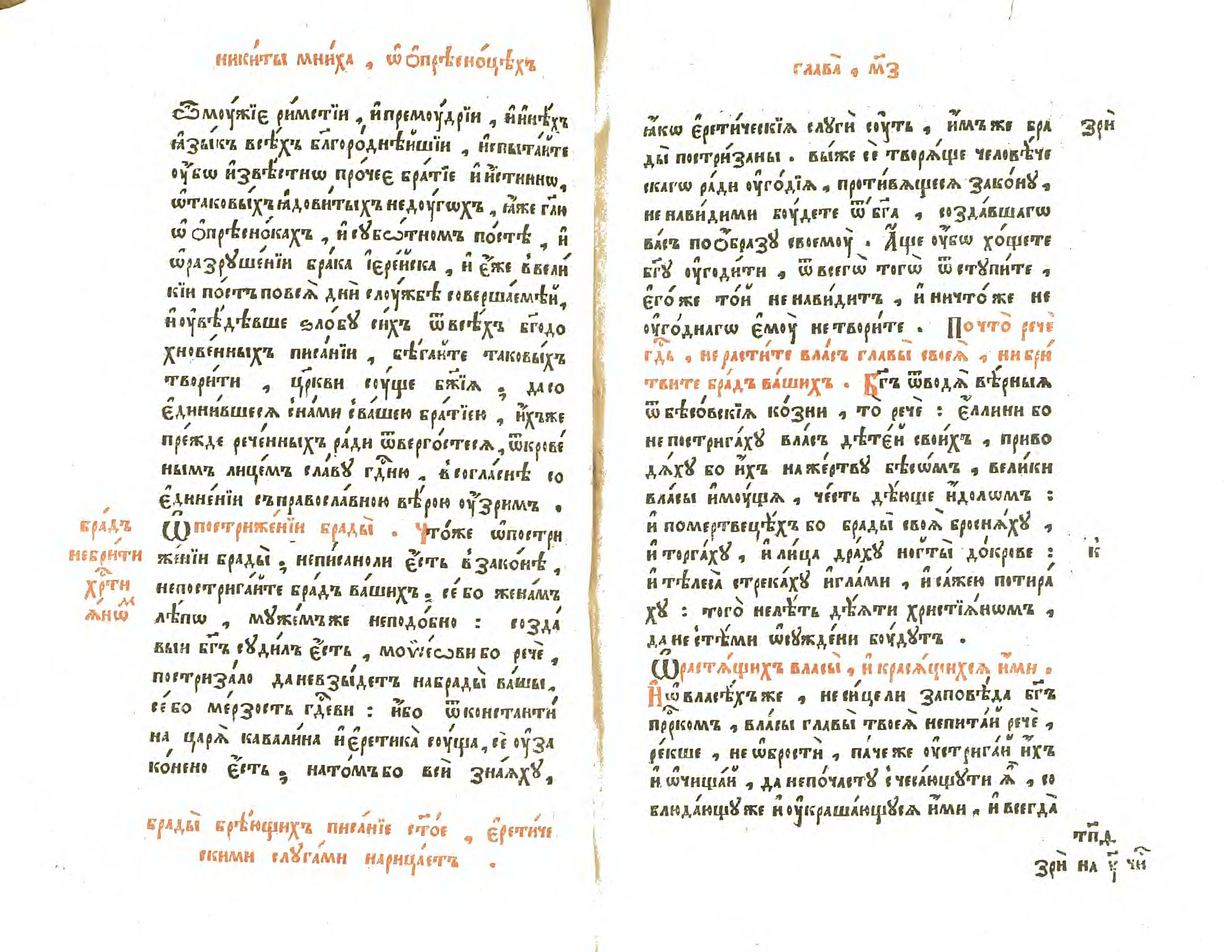 ники́ты мни́ха , ѡ҆ ѻ҆прѣсно́цѣхъ
Ѽ мѹ́жїє ри́мстїи , и҆премѹ́дрїи , и҆и҆нѣ́хъ
ꙗ҆зы́къ всѣ́хъ бл҃горо́днѣйшїи , и҆спыта́йте
ѹ҆́бѡ и҆звѣ́стнѡ про́чеє бра́тїе и҆и҆́стиннѡ,
ѡ҆таковы́хъ ꙗ҆дови́тыхъ недѹ́гѡхъ , ꙗ҆́же гл҃ю
ѡ҆ ѻ҆прѣсно́кахъ , и҆сꙋбѡ́тномъ по́стѣ , и҆
ѡ҆разрꙋше́нїи бра́ка і҆єре́йска , и҆ є҆́же ввели́
кїи по́стъ повсѧ̀ дни̑ слѹ́жбѣ соверша́емѣй,
и҆ѹ҆вѣ́дѣвше ѕло́бꙋ си́хъ ѿвсѣ́хъ бг҃одо
хнове́нныхъ писа́нїи , бѣ́гайте таковы́хъ
твори́ти , цр҃кви сѹ́ще бж҃їѧ ; дасо
є҆дини́вшеесѧ сна́ми сва́шею бра́тїею , и҆́хъже
пре́жде рече́нныхъ ра́ди ѿверго́стесѧ, ѿкрове́
нымъ лице́мъ сла́вꙋ гд҇ню , всогла́снѣ со
є҆дине́нїи съправосла́вною вѣ́рою ѹ҆́зримъ .
Ѽ пострижє́нїи брады̀ . Что́же ѡ҆постри
же́нїи брады̀ ; непи́саноли є҆́сть взако́нѣ ,
непострига́йте бра́дъ ва́шихъ ; сє́ бо жена́мъ
лѣ́пѡ , мꙋже́мъже неподо́бно : созда́
выи бг҃ъ сꙋди́лъ є҆́сть , мѡѷсе́ѡви бо рече̑ ,
постриза́ло даневзы́детъ набрады̀ ва́шы,
се́ бо ме́рзость гд҇еви : и҆́бо ѿконстанти́
на царѧ̀ кавали́на и҆є҆ретика̀ сѹ́ща, се̑ ѹ҆за
ко́нено є҆́сть ; нато́мъбо вси̑ зна́ѧхꙋ,
бра́дъ
небри́ти
хр҇ти
ѧ́нѡⷨ
брады̀ брѣ́ющихъ писа́нїе ст҃о́е , є҆рети́че
скими слꙋга́ми нарица́етъ .
глава̀ , м҃з
ꙗ҆́кѡ є҆рети́ческїѧ слѹги̑ сѹ́ть , и҆́мъже бра
ды̀ постри́заны . вы́же се̑ творѧ́ще человѣ́че
скагѡ ра́ди ѹ҆го́дїѧ , проти́вѧщесѧ зако́нꙋ ,
ненави́дими бѹ́дете ѿ бг҃а , созда́вшагѡ
ва́съ поѻ҆́бразꙋ своемѹ̀ . А҆́ще ѹ҆́бѡ хо́щете
бг҃ꙋ ѹ҆годи́ти , ѿ всегѡ̀ тогѡ̀ ѿстꙋпи́те ,
є҆гѡ́же то́й ненави́дитъ , и҆ ничто́же не
ѹ҆го́днагѡ є҆мѹ̀ нетвори́те . Почто̀ рече̑
гд҇ь , нерасти́те вла́съ главы̀ своеѧ̀ , ни бри́
твите бра́дъ ва́шихъ . Бг҃ъ ѿводѧ̀ вѣ́рныѧ
ѿ бѣсо́вскїѧ ко́зни , то̀ рече̑ : є҆́ллини бо
непострига́хꙋ вла́съ дѣте́й свои́хъ , приво
дѧ́хꙋ бо и҆́хъ наже́ртвꙋ бѣсѡ́мъ , вели́ки
вла́сы и҆мѹ́щѧ , че́сть дѣ́юще и҆́долѡмъ :
и҆ помертвецѣ́хъ бо брады̀ своѧ̀ броснѧ́хꙋ ,
и҆ торга́хꙋ , и҆ лица̀ дра́хꙋ ногты̀ до́крове :
и҆ тѣлеса̀ стрека́хꙋ и҆гла́ми , и҆ са́жею потира́
хꙋ : того̀ нелѣ́ть дѣ́ѧти христїѧ́нѡмъ ,
дане стѣ́ми ѡ҆сꙋжде́ни бѹ́дꙋтъ .
Ѽ растѧ́щихъ власы̀ , и҆ красѧ́щихсѧ и҆́ми .
И҆ ѡ҆ власѣ́хъже , неси́цели запове́да бг҃ъ
прⷪ҇ркомъ , вла́сы главы̀ твоеѧ̀ непита́й рече̑ ,
ре́кше , не ѡ҆брости̑ , па́че же ѹ҆стрига́й и҆́хъ
и҆ ѡ҆чища́й , данепоча́стꙋ счеса́ющꙋти ѧ҆̀ , со
блюда́ющꙋже и҆ѹ҆краша́ющꙋсѧ и҆́ми , и҆ всегда̀
зри̑
к҃
зри̑ на